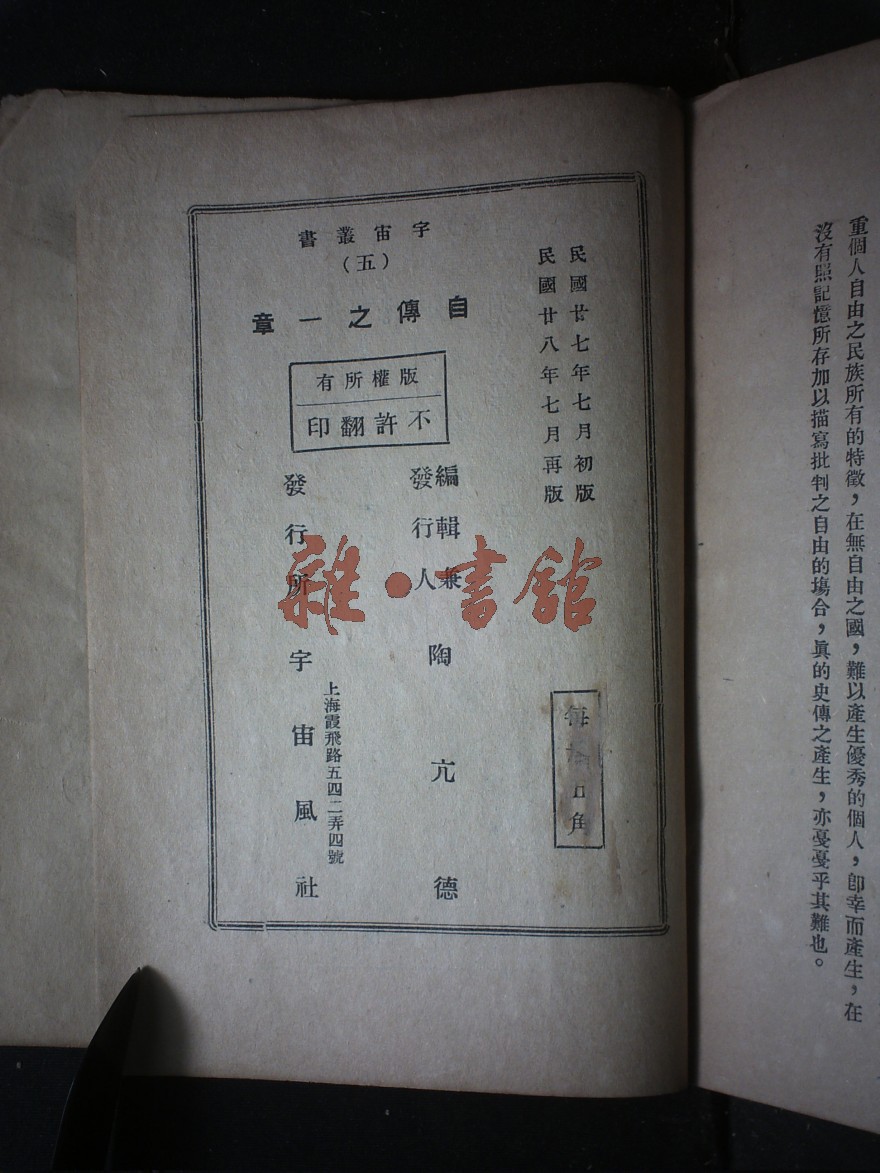 重個人自由之民族所有的特徵，在無自由之國，難以產生優秀的個人，卽幸而產生，在
沒有照記憶所存加以描寫批判之自由的塲合，眞的史傳之產生，亦戞戞乎其難也。
民國廿七年七月初版
民國廿八年七月再版
每角
宇宙叢書
（五）
自傳之一章
版權所有
不許翻印
編輯兼
發行人
陶亢德
上海霞飛路五四二弄四號
發行所宇宙風社
雜·書館